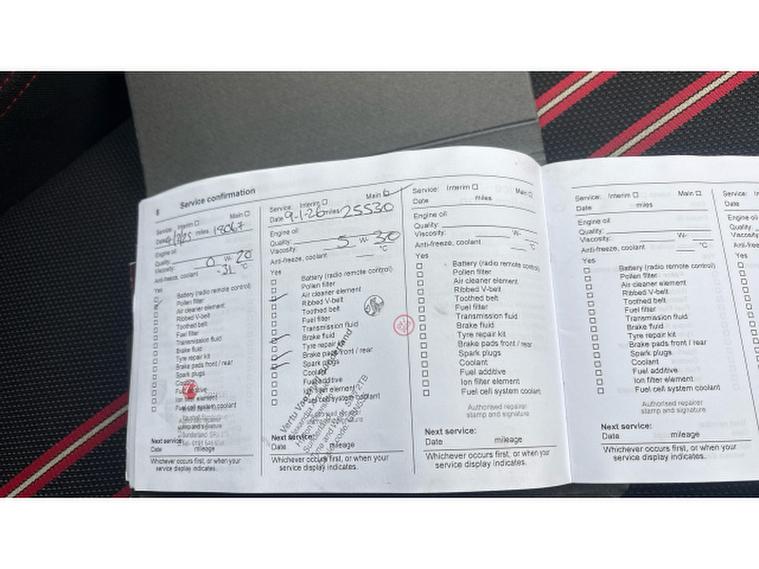 8 Service confirmation
Service: Interim □ Main □
Date miles 18067
Engine oil
Quality: 0 W- 20
Viscosity:
Anti-freeze, coolant -31 °C
Yes
□ Battery (radio remote control)
□ Pollen filter
□ Air cleaner element
□ Ribbed V-belt
□ Toothed belt
□ Fuel filter
□ Transmission fluid
□ Brake fluid
□ Tyre repair kit
□ Brake pads front / rear
□ Spark plugs
□ Coolant
□ Fuel additive
□ Ion filter element
□ Fuel cell system coolant
Authorised repairer
stamp and signature
Sunderland
Next service:
Date mileage
Whichever occurs first, or when your
service display indicates.
Service: Interim □ Main □
Date 9-1-26 miles 25530
Engine oil
Quality: 5 W- 30
Viscosity:
Anti-freeze, coolant °C
Yes
□ Battery (radio remote control)
□ Pollen filter
□ Air cleaner element
□ Ribbed V-belt
□ Toothed belt
□ Fuel filter
□ Transmission fluid
□ Brake fluid
□ Tyre repair kit
□ Brake pads front / rear
□ Spark plugs
□ Coolant
□ Fuel additive
□ Ion filter element
□ Fuel cell system coolant
Vertu Sunderland
Next service:
Date mileage
Whichever occurs first, or when your
service display indicates.
Service: Interim □ Main □
Date miles
Engine oil
Quality: W-
Viscosity:
Anti-freeze, coolant °C
Yes
□ Battery (radio remote control)
□ Pollen filter
□ Air cleaner element
□ Ribbed V-belt
□ Toothed belt
□ Fuel filter
□ Transmission fluid
□ Brake fluid
□ Tyre repair kit
□ Brake pads front / rear
□ Spark plugs
□ Coolant
□ Fuel additive
□ Ion filter element
□ Fuel cell system coolant
Authorised repairer
stamp and signature
Next service:
Date mileage
Whichever occurs first, or when your
service display indicates.
Service: Interim □ Main □
Date miles
Engine oil
Quality: W-
Viscosity:
Anti-freeze, coolant °C
Yes
□ Battery (radio remote control)
□ Pollen filter
□ Air cleaner element
□ Ribbed V-belt
□ Toothed belt
□ Fuel filter
□ Transmission fluid
□ Brake fluid
□ Tyre repair kit
□ Brake pads front / rear
□ Spark plugs
□ Coolant
□ Fuel additive
□ Ion filter element
□ Fuel cell system coolant
Authorised repairer
stamp and signature
Next service:
Date mileage
Whichever occurs first, or when your
service display indicates.